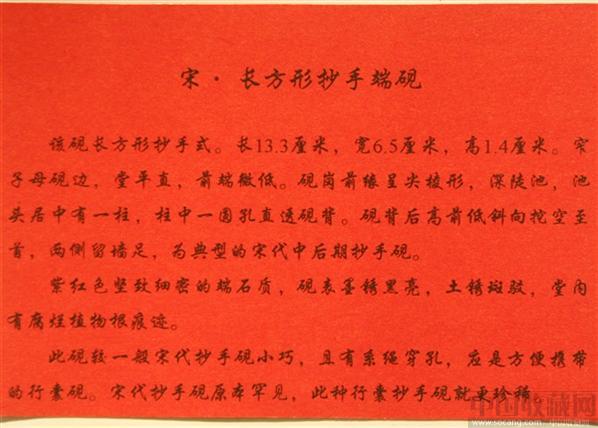 宋·长方形抄手端砚
该砚长方形抄手式。长13.3厘米，宽6.5厘米，高1.4厘米。窄
子母砚边，堂平直，前端微低。砚岗前缘呈尖棱形，深陡池，池
头居中有一柱，柱中一圆孔直透砚背。砚背后高前低斜向挖空至
首，两侧留墙足，为典型的宋代中后期抄手砚。
紫红色坚致细密的端石质，砚表墨锈黑亮，土锈斑驳，堂内
有腐烂植物根痕迹。
此砚较一般宋代抄手砚小巧，且有系绳穿孔，应是方便携带
的行囊砚。宋代抄手砚原本罕见，此种行囊抄手砚就更珍稀。
中国收藏网